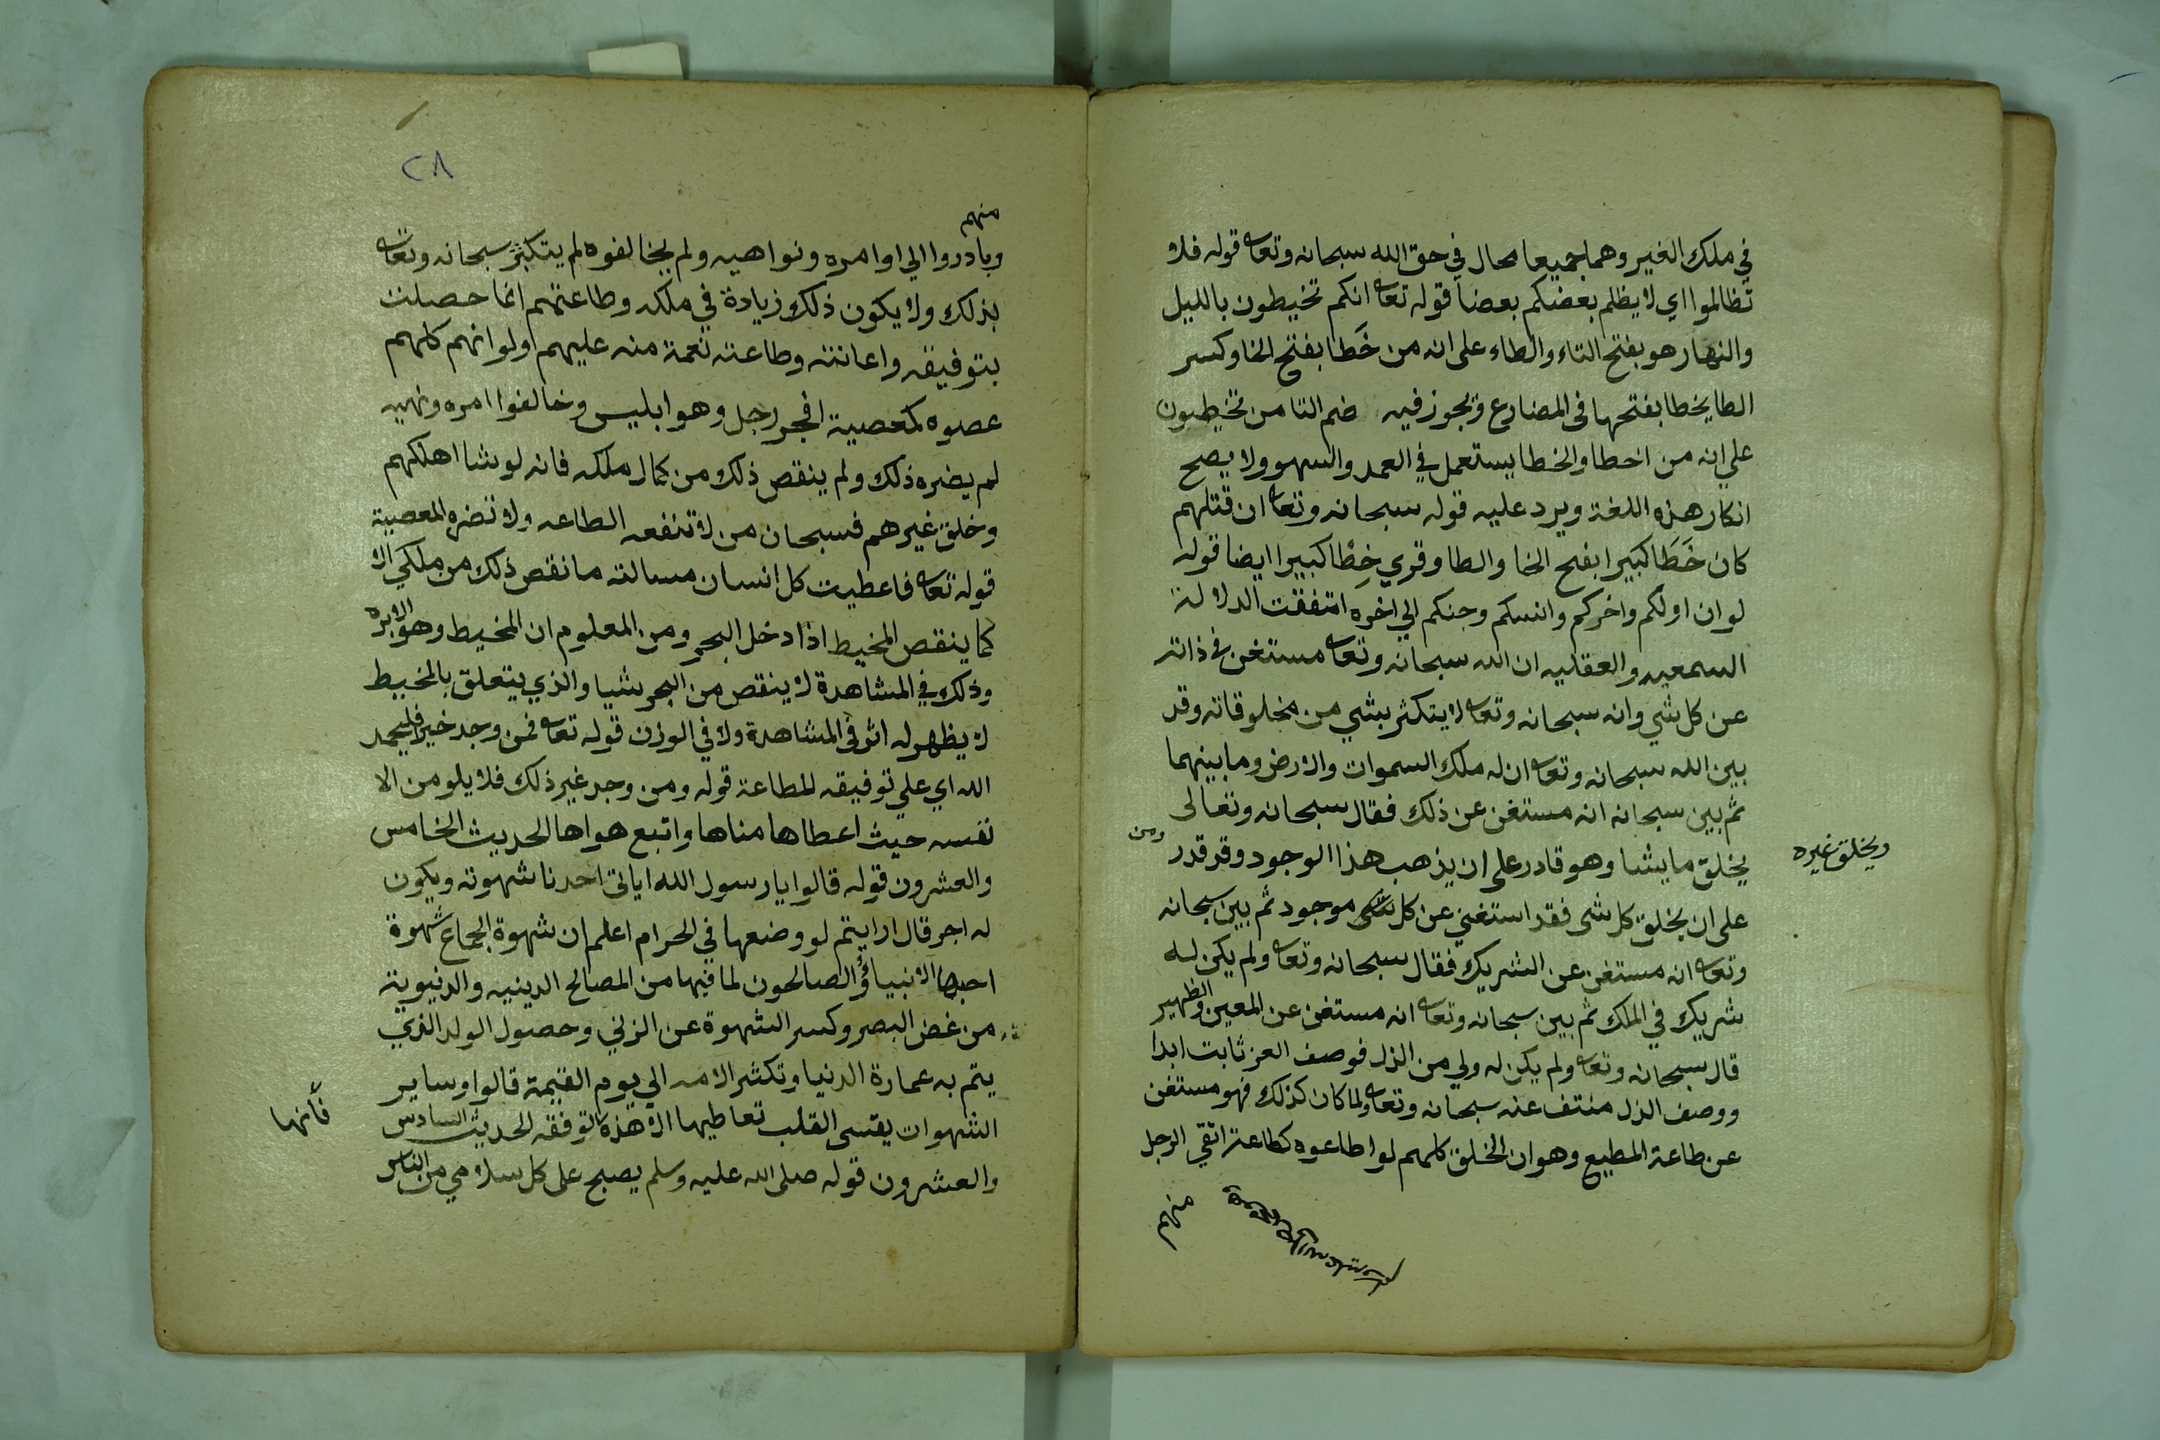 في ملك الغير وهما جميعا محال في حق الله سبحانه وتعا قوله فلا
تظالموا اي لا يظلم بعضكم بعضا قوله تعا انكم تخيطون بالليل
والنهار هو بفتح التاء والطاء على انه من خَطا بفتح الخا وكسر
الطا يخطا بفتحها في المضارع ويجوز فيه ضم التا من تخيطيون
على انه من اخطا والخطا يستعمل في العمد والسهو ولا يصح
انكار هذه اللغة ويرد عليه قوله سبحانه وتعا ان قتلهم
كان خَطَا كبيرا بفتح الخا والطا وقري خِطْا كبيرا ايضا قوله
لو ان اولكم واخركم وانسكم وجنكم الي اخره اتفقت الدلالة
السمعيه والعقليه ان الله سبحانه وتعا مستغن في ذاته
عن كل شي وانه سبحانه وتعا لا يتكثر بشي من مخلوقاته وقد
بين الله سبحانه وتعا ان له ملك السموات والارض وما بينهما
ثم بين سبحانه انه مستغن عن ذلك فقال سبحانه وتعالى
يخلق ما يشا وهو قادر على ان يذهب هذا الوجود وقد قدر ومن
ويخلق غيره
على ان يخلق كل شى فقد استغني عن كل شى موجود ثم بين سبحانه
وتعا انه مستغن عن الشريك فقال سبحانه وتعا ولم يكن له
شريك في الملك ثم بين سبحانه وتعا انه مستغن عن المعين والظهير
قال سبحانه وتعا ولم يكن له ولي من الذل فوصف العز ثابت ابدا
ووصف الذل منتف عنه سبحانه وتعا ولما كان كذلك فهو مستغن
عن طاعة المطيع وهو ان الخلق كلهم لو اطاعوه كطاعة اتقي الرجل
منهم
٢٨
منهم
وبادروا الي اوامره ونواهيه ولم يخالفوه لم يتكثر سبحانه وتعا
بذلك ولا يكون ذلك زيادة في ملكه وطاعتهم انما حصلت
بتوفيقه واعانته وطاعته نعمة منه عليهم ولو انهم كلهم
عصوه كمعصية افجر رجل وهو ابليس وخالفوا امره ونهيه
لم يضره ذلك ولم ينقص ذلك من كمال ملكه فانه لو شا اهلكهم
وخلق غيرهم فسبحان من لا تنفعه الطاعه ولا تضره المعصية
قوله تعا فاعطيت كل انسان مسالته ما نقص ذلك من ملكي الا
كما ينقص المخيط اذا دخل البحر ومن المعلوم ان المخيط وهو الابره
وذلك في المشاهدة لا ينقص من البحر شيا والذي يتعلق بالمخيط
لا يظهر له اثر في المشاهدة ولا في الوزن قوله تعا فمن وجد خيرا فليحمد
الله اي علي توفيقه للطاعة قوله ومن وجد غير ذلك فلا يلومن الا
نفسه حيث اعطاها مناها واتبع هواها الحديث الخامس
والعشرون قوله قالوا يا رسول الله اياتي احدنا شهوته ويكون
له اجر قال ارايتم لو وضعها في الحرام اعلم ان شهوة الجماع شهوة
احبها الانبيا والصالحون لما فيها من المصالح الدينيه والدنيوية
من غض البصر وكسر الشهوة عن الزني وحصول الولد الذي
يتم به عمارة الدنيا وتكثر الامه الي يوم القيمة قالوا وساير
الشهوات يقسى القلب تعاطيها الا هذه توفقه الحديث السادس
فأنها
والعشرون قوله صلى الله عليه وسلم يصبح على كل سلامي من الناس